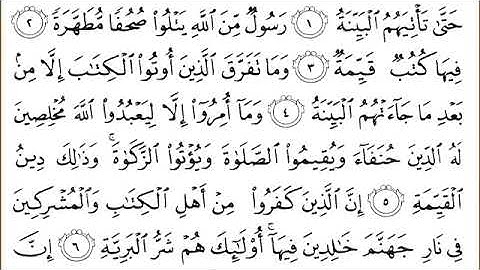 حَتَّىٰ تَأْتِيَهُمُ الْبَيِّنَةُ ١ رَسُولٌ مِّنَ اللَّهِ يَتْلُوا صُحُفًا مُّطَهَّرَةً ٢
فِيهَا كُتُبٌ قَيِّمَةٌ ٣ وَمَا تَفَرَّقَ الَّذِينَ أُوتُوا الْكِتَابَ إِلَّا مِنْ
بَعْدِ مَا جَاءَتْهُمُ الْبَيِّنَةُ ٤ وَمَا أُمِرُوا إِلَّا لِيَعْبُدُوا اللَّهَ مُخْلِصِينَ
لَهُ الدِّينَ حُنَفَاءَ وَيُقِيمُوا الصَّلَوٰةَ وَيُؤْتُوا الزَّكَوٰةَ ۚ وَذَٰلِكَ دِينُ
الْقَيِّمَةِ ٥ إِنَّ الَّذِينَ كَفَرُوا مِنْ أَهْلِ الْكِتَابِ وَالْمُشْرِكِينَ
فِي نَارِ جَهَنَّمَ خَالِدِينَ فِيهَا ۚ أُولَٰئِكَ هُمْ شَرُّ الْبَرِيَّةِ ٦ إِنَّ